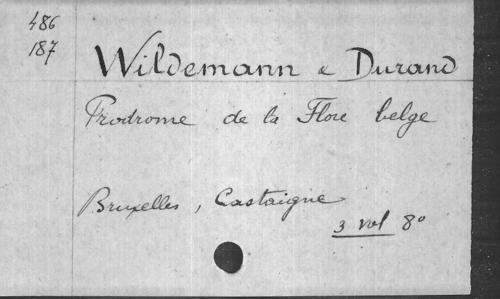 486
187
Wildemann & Durand
Prodrome de la Flore belge
Bruxelles, Castaigne
3 vol 8°